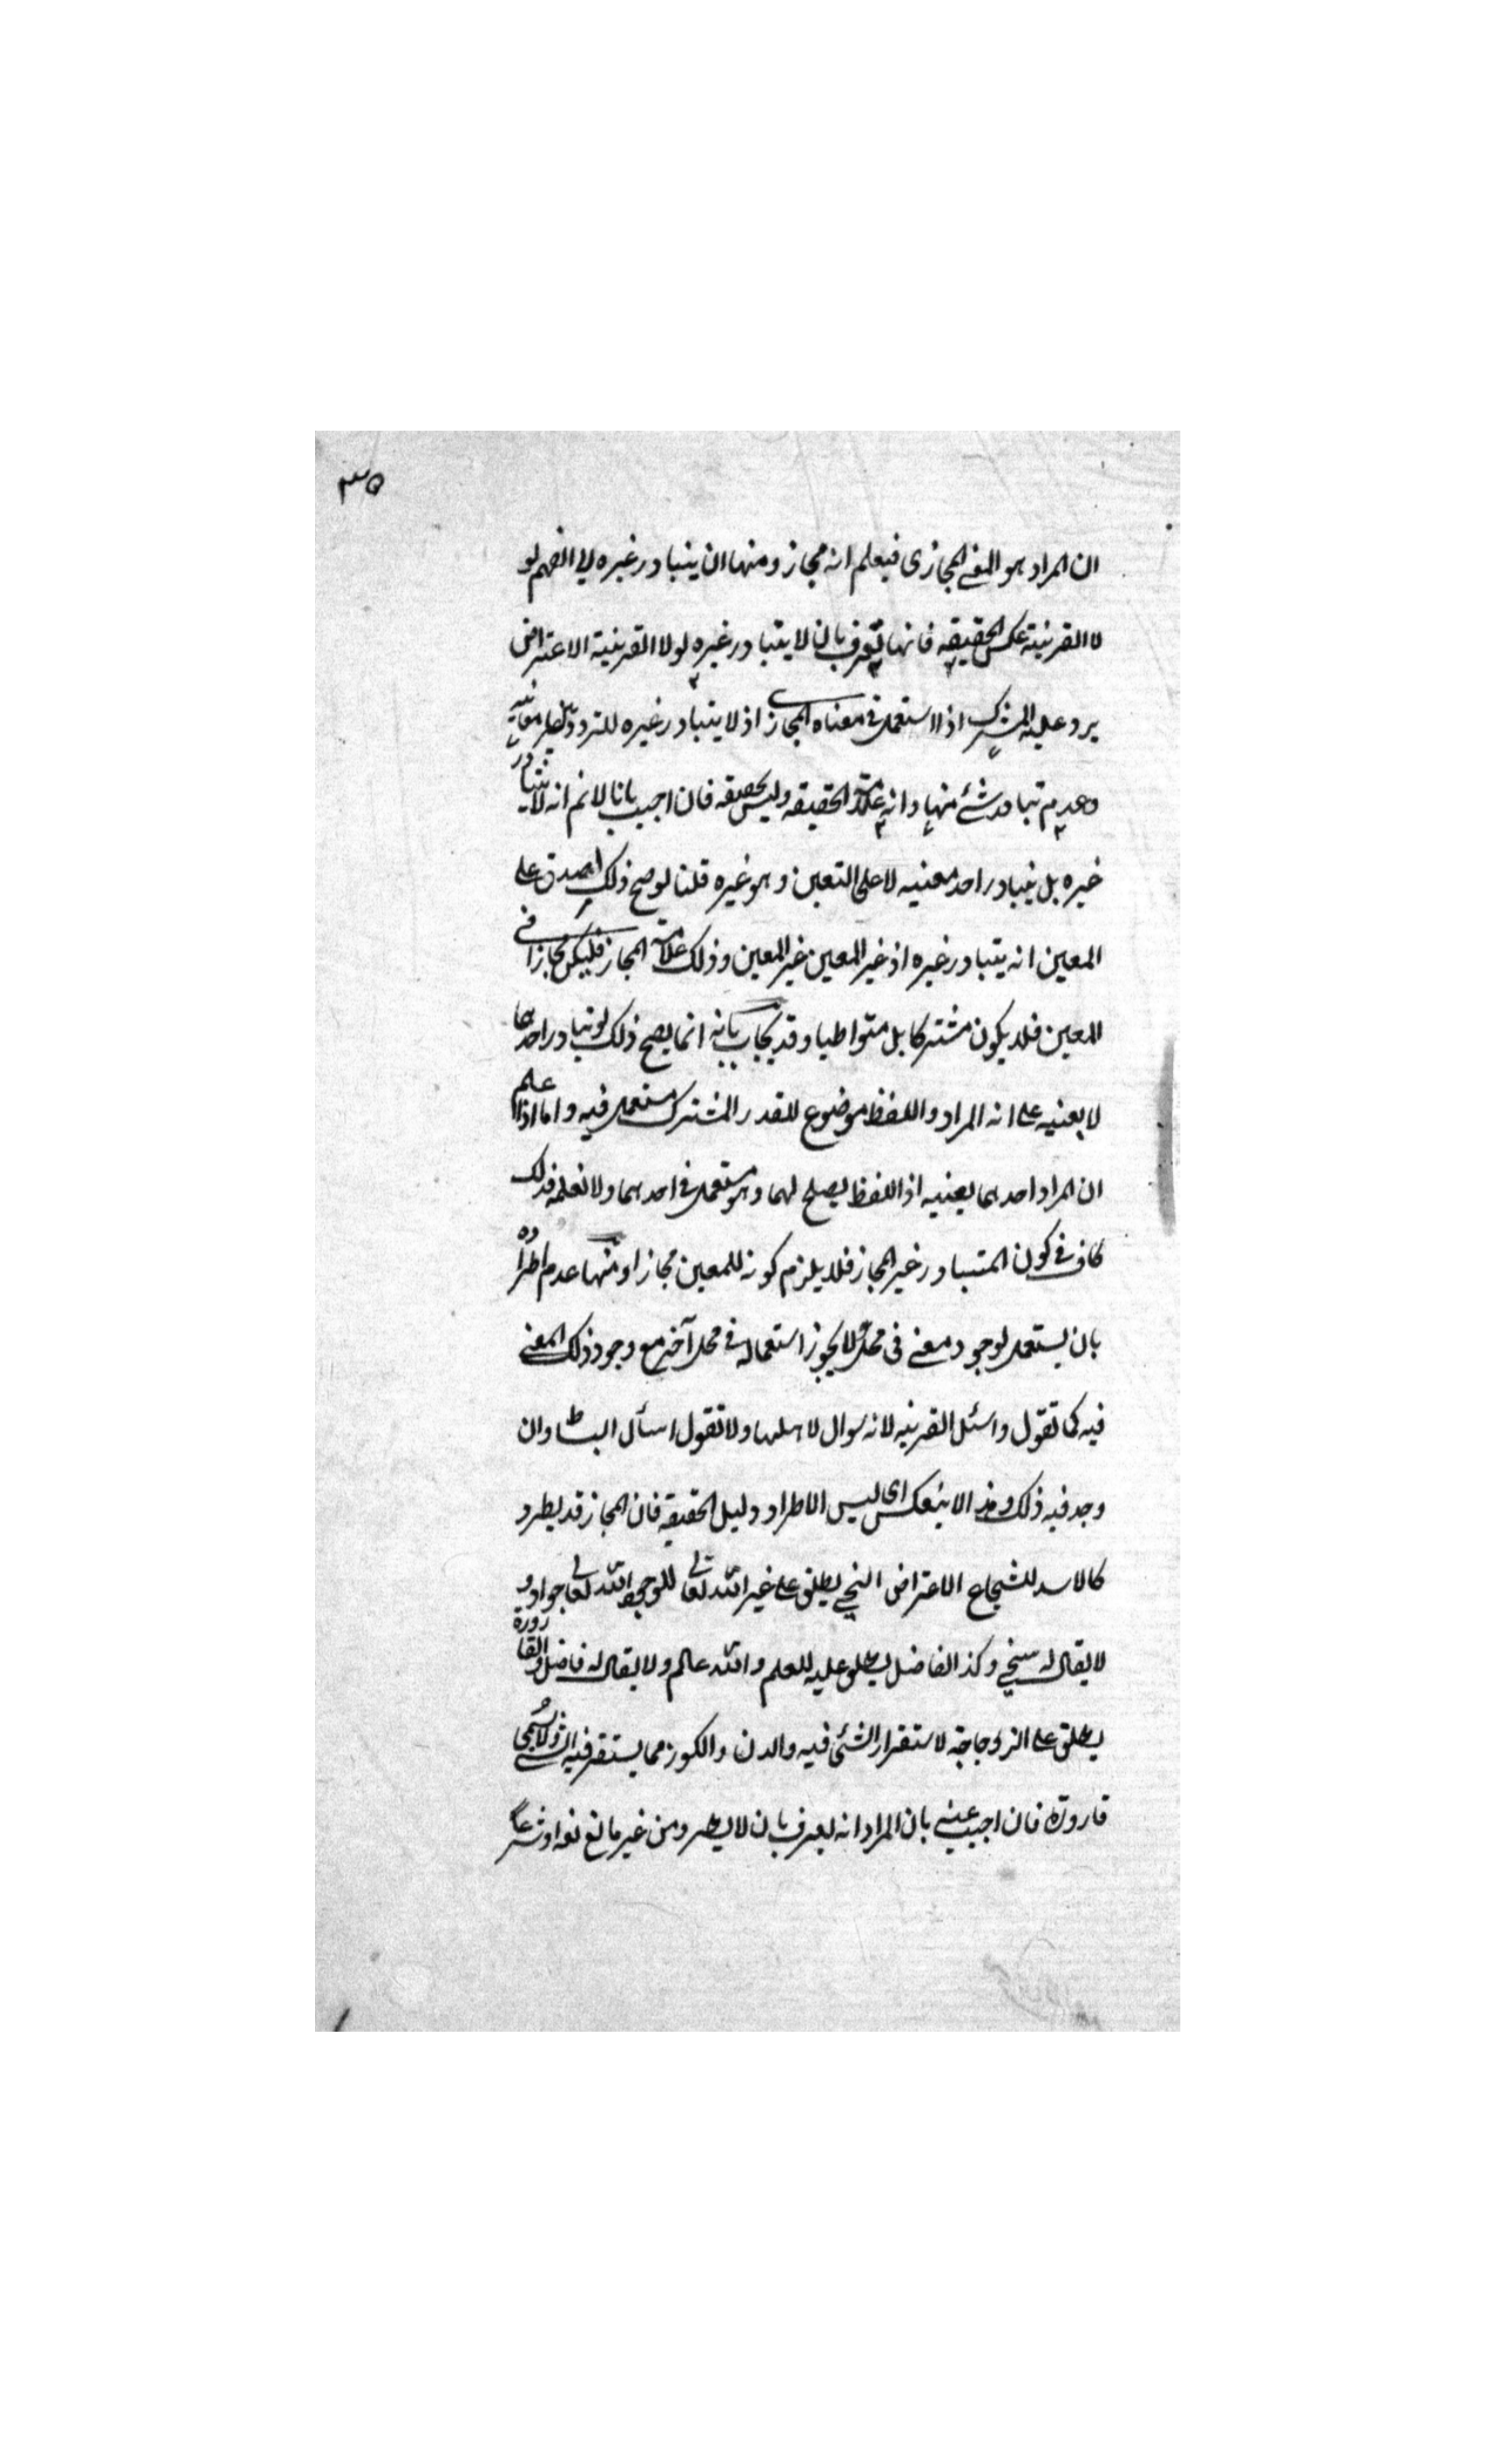 ٣٥
ان المراد هو المعنى المجازى فيعلم انه مجاز ومنها ان يتبادر غيره الى الفهم لو
لا القرينة عكس الحقيقه فانها تعرف بان لا يتبادر غيره لولا القرينة الاعتراض
يرد عليه المشترك اذا استعمل فى معناه المجازى اذ لا يتبادر غيره للتردد بين معانيه
وعدم تبادر شئ منها وانه علامة الحقيقه وليس بحقيقه فان اجيب بانا لانم انه لا يتبادر
غيره بل يتبادر احد معنييه لا على التعين وهو غيره قلنا لو صح ذلك لصدق على
المعين انه يتبادر غيره اذ غير المعين غير المعين وذلك علامة المجاز فليكن مجازا فى
المعين فلا يكون مشتركا بل متواطيا وقد يجاب بانه انما يصح ذلك لو تبادر احدهما
لا بعينه على انه المراد واللفظ موضوع للقدر المشترك مستعمل فيه واما اذا علم
ان المراد احدهما بعينه اذ اللفظ يصلح لهما وهو مستعمل فى احدهما ولا نعلمه فذلك
كاف فى كون المتبادر غير المجاز فلا يلزم كونه للمعين مجازا ومنها عدم اطراده
بان يستعمل لوجود معنى فى محل لا يجوز استعماله فى محل آخر مع وجود ذلك المعنى
فيه كما تقول واسئل القرينه لانه سوال لاهلها ولا تقول اسأل البساط وان
وجد فيه ذلك وهذا لا ينعكس اى ليس الاطراد دليل الحقيقه فان المجاز قد يطرد
كالاسد للشجاع الاعتراض السخى يطلق على غير الله تعالى للوجود والله تعالى جواد و
لا يقال له سخى وكذ الفاضل يطلق عليه للعلم والله عالم ولا يقال له فاضل والقارورة
يطلق على الزجاجة لاستقرار الشئ فيه والدن والكوز مما يستقر فيه الشئ ولا يسمى
قارورة فان اجيب عنه بان المراد انه يعرف بان لا يطرد من غير مانع لغة او شرعا